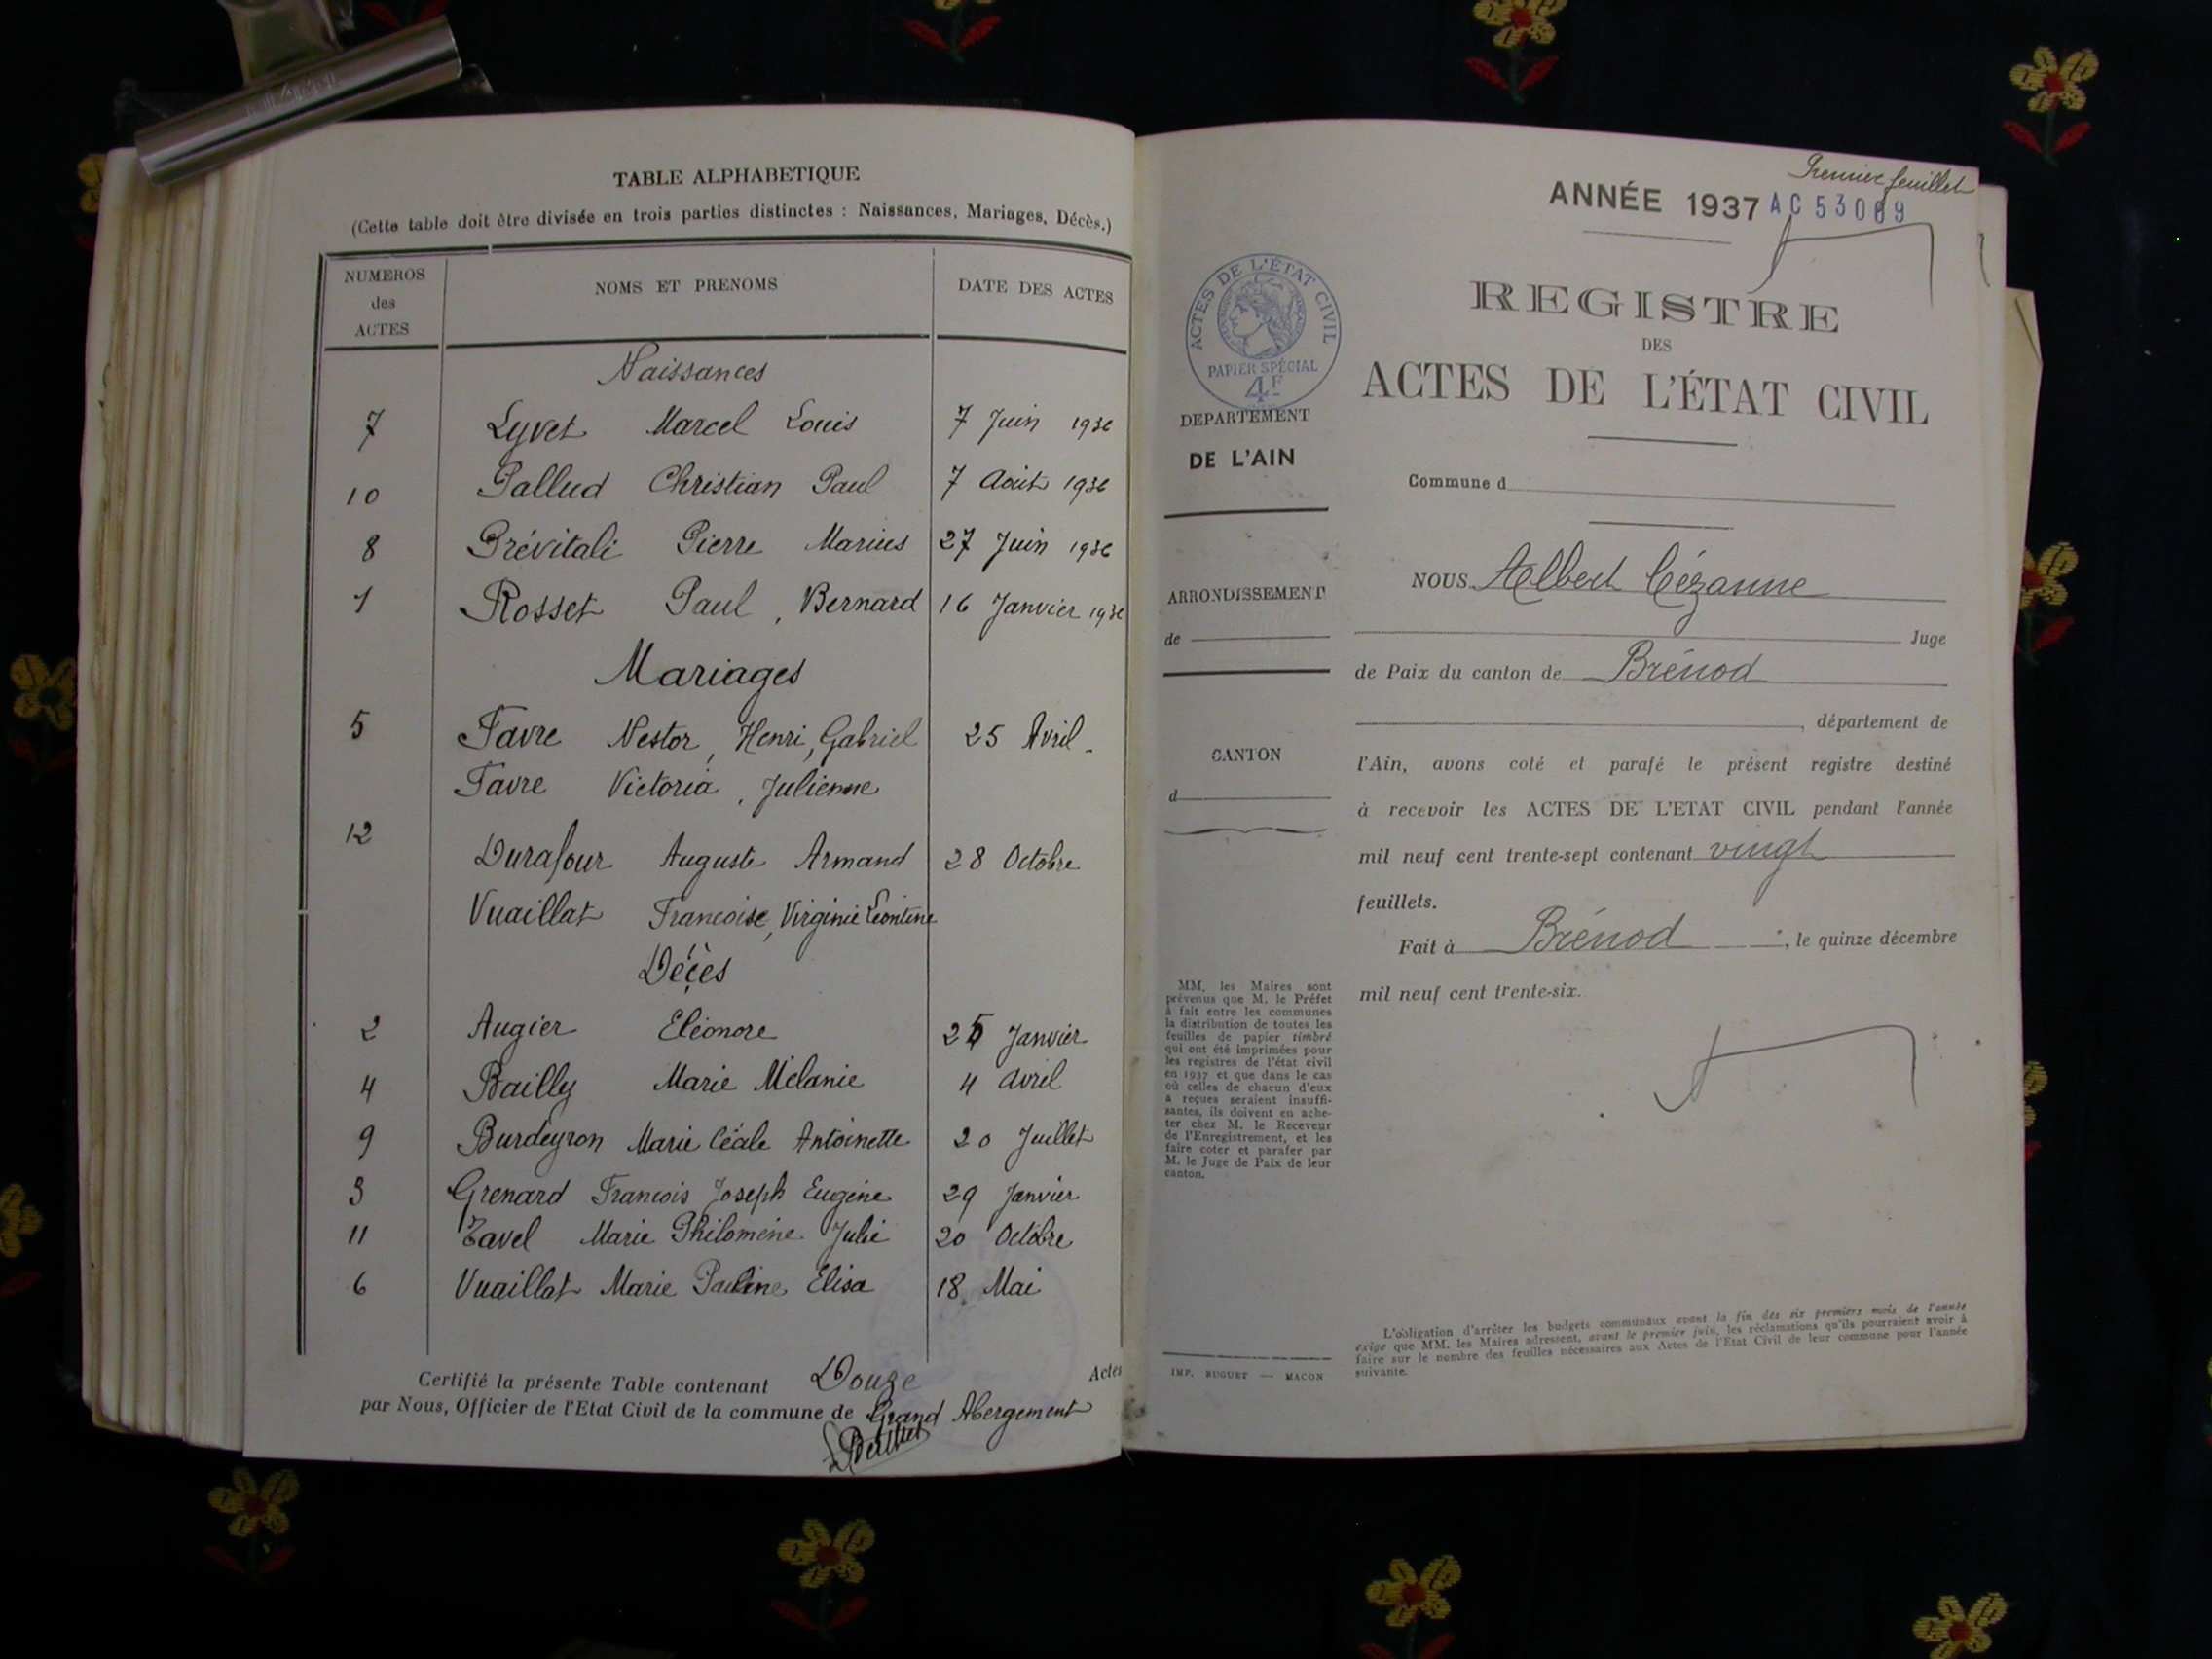 TABLE ALPHABETIQUE
(Cette table doit être divisée en trois parties distinctes : Naissances, Mariages, Décès.)
NUMEROS des ACTES
NOMS ET PRENOMS
DATE DES ACTES
Naissances
7 Lyvet Marcel Louis 7 Juin 1936
10 Pallud Christian Paul 7 Août 1936
8 Prévitali Pierre Marius 27 Juin 1936
1 Rosset Paul, Bernard 16 Janvier 1936
Mariages
5 Favre Nestor, Henri, Gabriel 25 Avril
Favre Victoria, Julienne
12
Durafour Auguste Armand 28 Octobre
Vuaillat Françoise, Virginie Léontine
Décès
2 Augier Eléonore 25 Janvier
4 Bailly Marie Mélanie 4 Avril
9 Burdeyron Marie Antoinette 20 Juillet
3 Grenard François Joseph Eugène 29 Janvier
11 Tavel Marie Philomène Julie 20 Octobre
6 Vuaillat Marie Pauline Elisa 18 Mai
Certifié la présente Table contenant Douze Actes
par Nous, Officier de l'Etat Civil de la commune de Grand Abergement
Premier feuillet
ANNÉE 1937 AC 53069
ACTES DE L'ÉTAT CIVIL
PAPIER SPÉCIAL
4F
DEPARTEMENT
DE L'AIN
ARRONDISSEMENT
de
CANTON
d
MM. les Maires sont
prévenus que M. le Préfet
a fait entre les communes
la distribution de toutes les
feuilles de papier timbré
qui ont été imprimées pour
les registres de l'état civil
en 1937 et que dans le cas
où celles de chacun d'eux
a reçues seraient insuffi-
santes, ils doivent en ache-
ter chez M. le Receveur
de l'Enregistrement, et les
faire coter et parafer par
M. le Juge de Paix de leur
canton.
IMP. BUGUET — MACON
REGISTRE
DES
ACTES DE L'ÉTAT CIVIL
Commune d
NOUS Albert Cézanne
Juge
de Paix du canton de Brénod
, département de
l'Ain, avons coté et parafé le présent registre destiné
à recevoir les ACTES DE L'ETAT CIVIL pendant l'année
mil neuf cent trente-sept contenant vingt
feuillets.
Fait à Brénod, le quinze décembre
mil neuf cent trente-six.
L'obligation d'arrêter les budgets communaux avant la fin des six premiers mois de l'année
exige que MM. les Maires adressent, avant le premier juin, les réclamations qu'ils pourraient avoir à
faire sur le nombre des feuilles nécessaires aux Actes de l'Etat Civil de leur commune pour l'année
suivante.